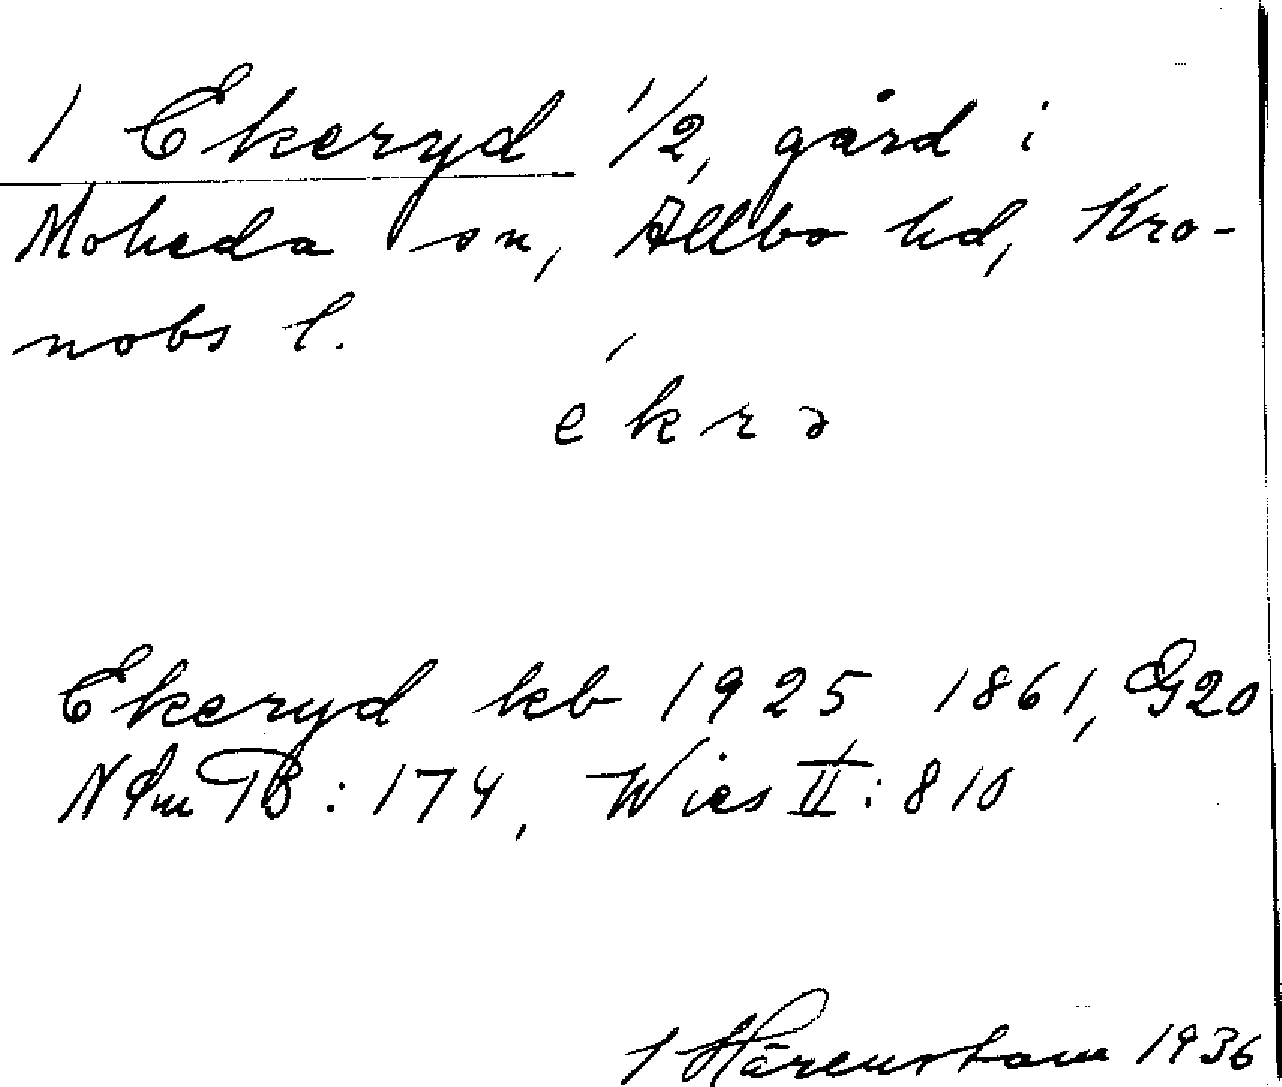 1 Ekeryd 1/2, gård i
Moheda sn, Allbo hd, Kro-
nobs l.
ékrə
Ekeryd kb 1925 1861, G20
NSm TB: 174, Wies II: 810
1 Härenstam 1936